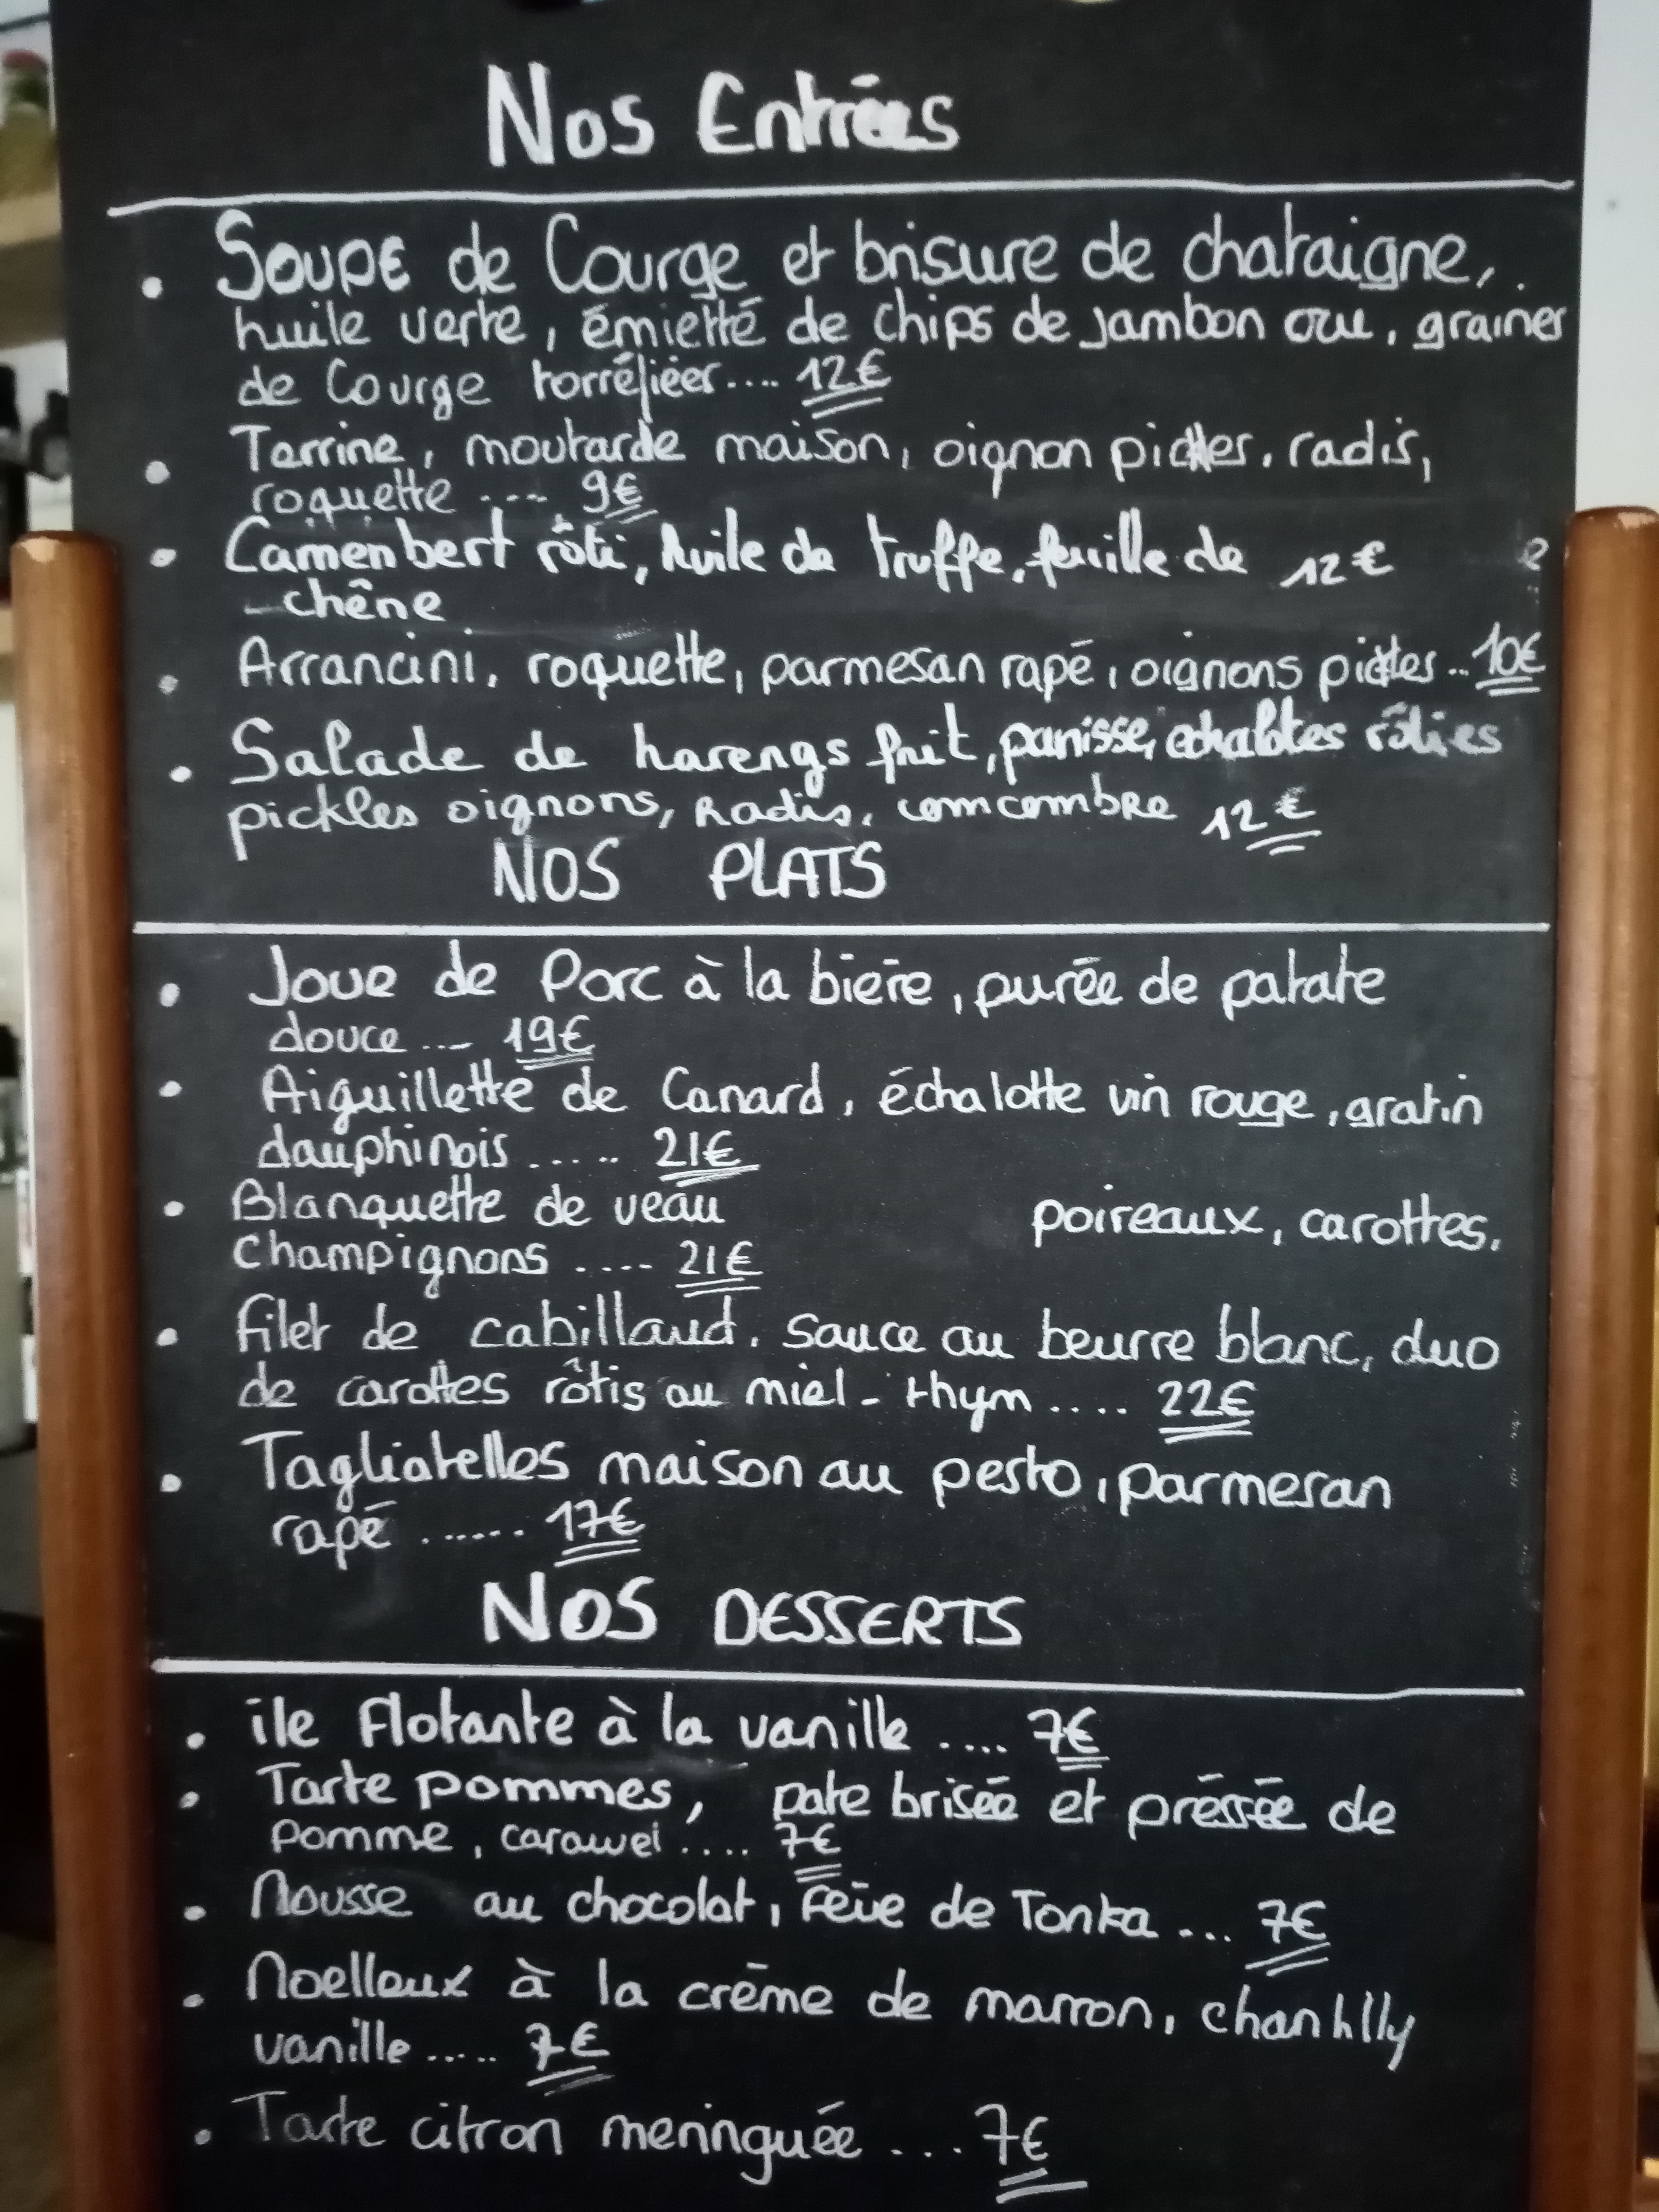 Nos Entrées
• Soupe de Courge et brisure de chataigne,
huile verte, émietté de chips de jambon cru, graines
de Courge torréfiées.... 12€
• Terrine, moutarde maison, oignon pickles, radis,
roquette .... 9€
• Camenbert rôti, huile de truffe, feuille de 12€
- chêne
• Arrancini, roquette, parmesan rapé, oignons pickles .. 10€
• Salade de harengs fruit, panisse, echalotes rôties
pickles oignons, Radis, comcombre 12€
NOS PLATS
• Joue de Porc à la bière, purée de patate
douce ... 19€
• Aiguillette de Canard, échalotte vin rouge, gratin
dauphinois ..... 21€
• Blanquette de veau poireaux, carottes,
Champignons .... 21€
• filet de cabillaud, sauce au beurre blanc, duo
de carottes rôtis au miel - thym .... 22€
• Tagliatelles maison au pesto, parmesan
rapé ...... 17€
NOS DESSERTS
• île flotante à la vanille .... 7€
• Tarte pommes, pate brisée et préssée de
pomme, caramel .... 7€
• Mousse au chocolat, fève de Tonka ... 7€
• Moelleux à la crème de marron, chantilly
vanille ..... 7€
• Tarte citron meringuée ... 7€